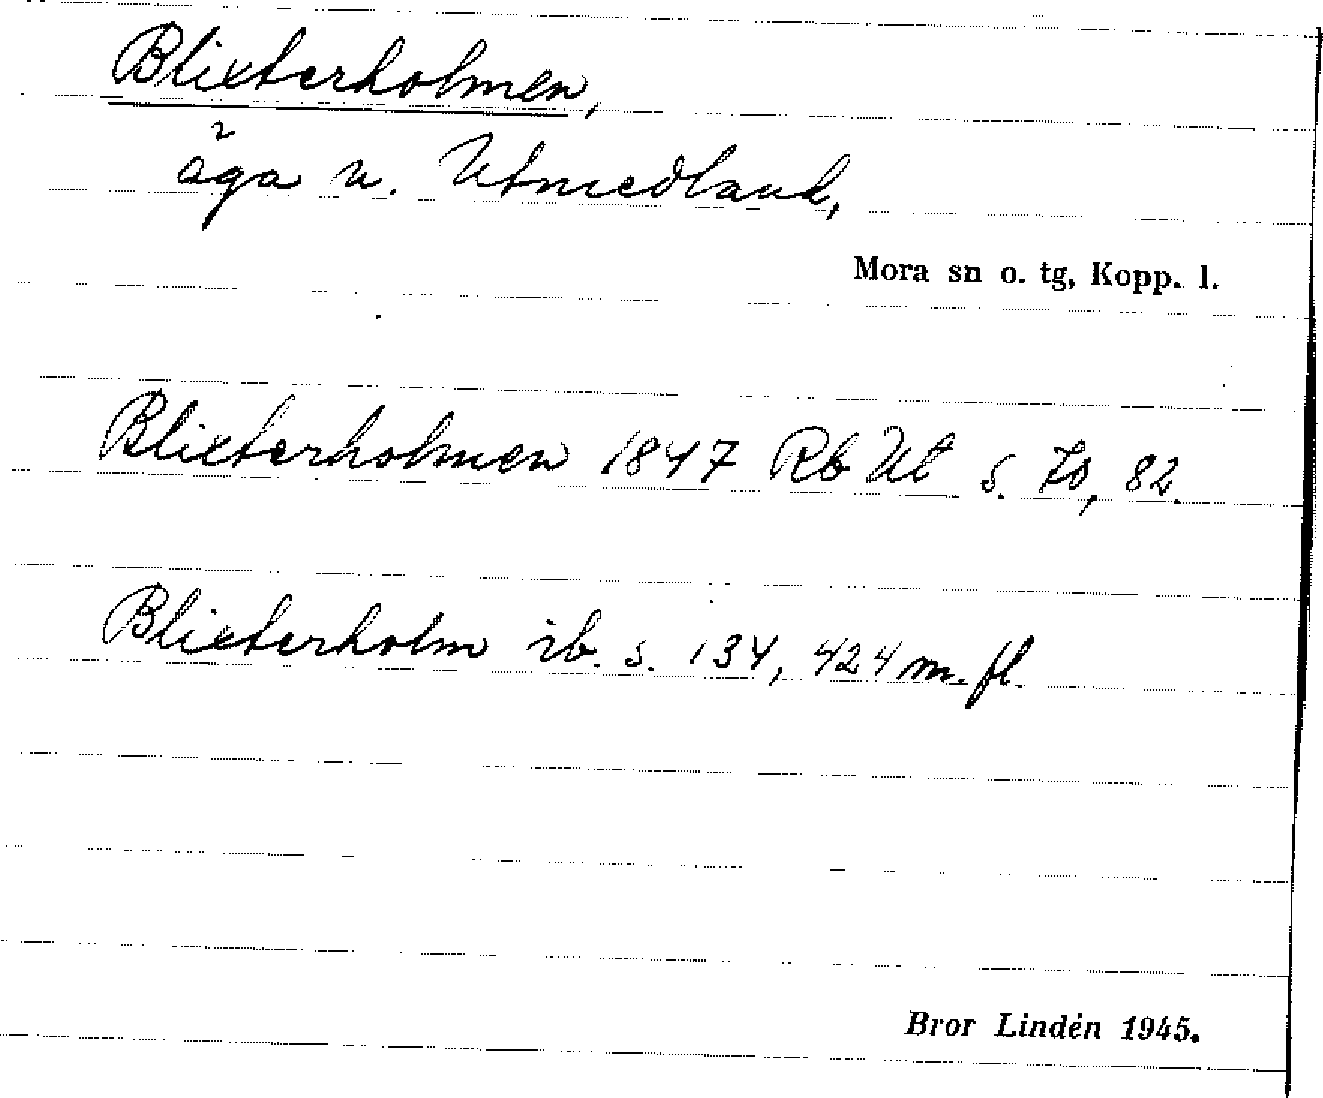 Blixterholmen,
äga u. Utmedland,
Mora sn o. tg, Kopp. l.
Blixterholmen 1847 Rb Ut s. 70, 82.
Blixterholm ib. s. 134, 424 m. fl.
Bror Lindén 1945.